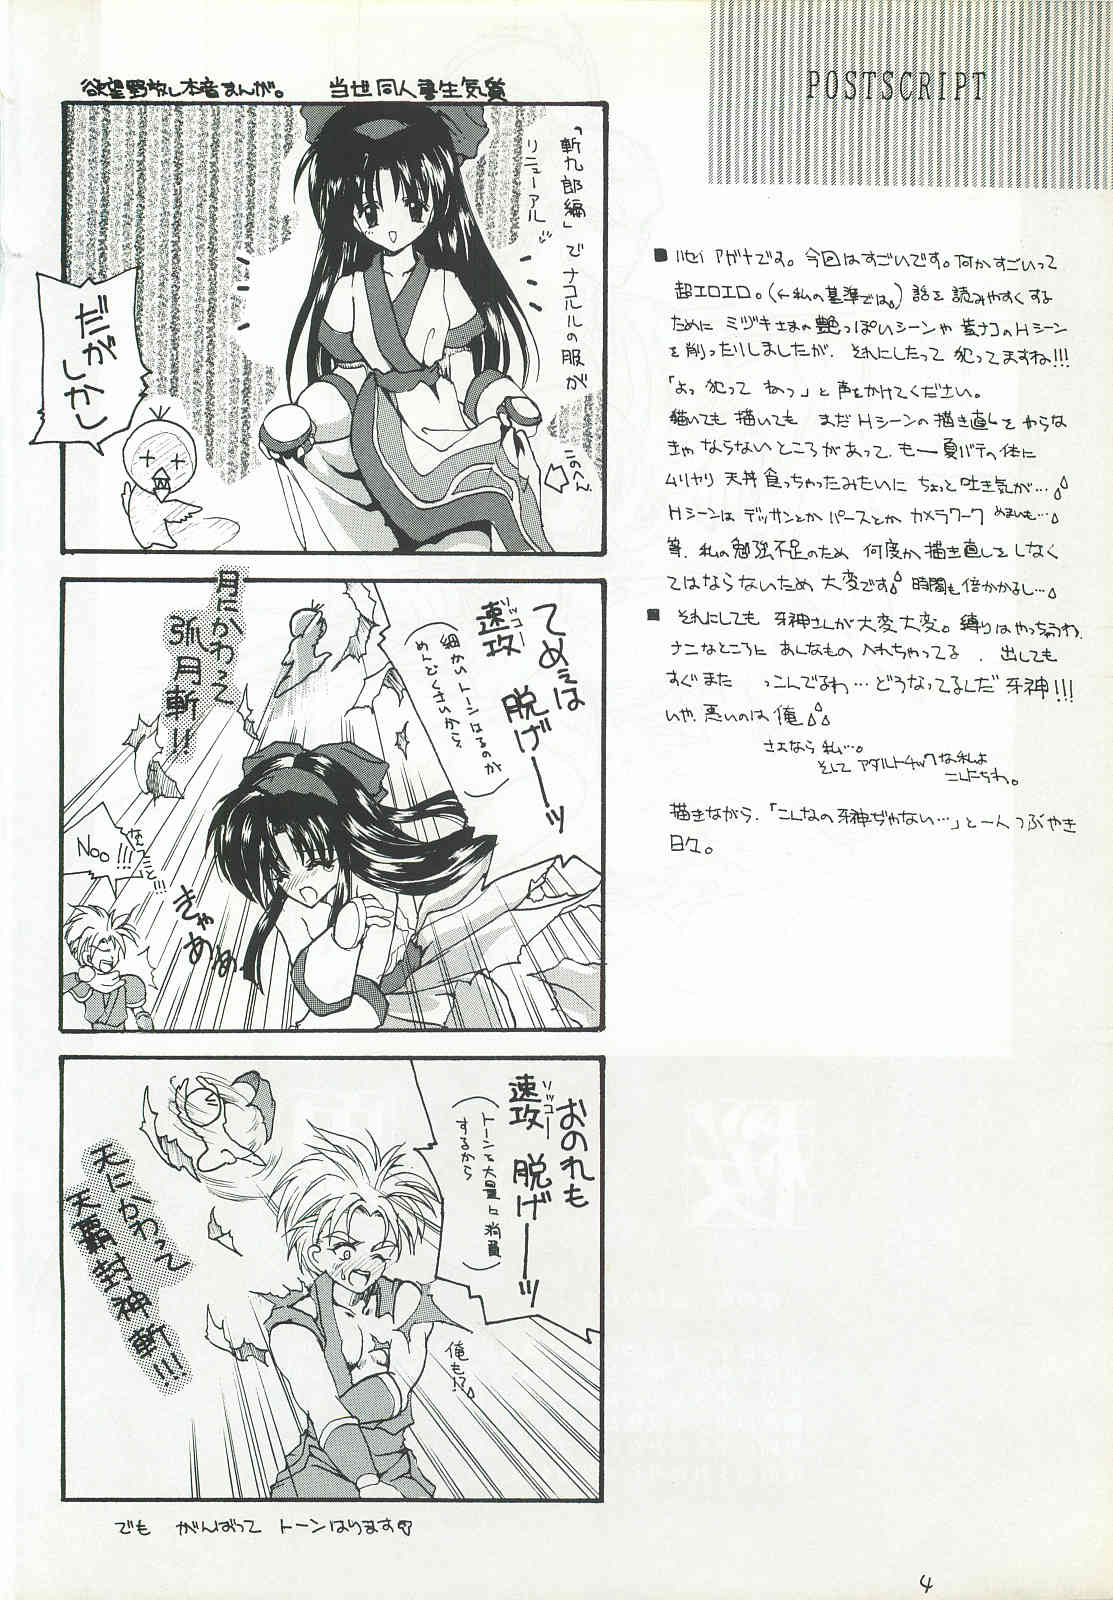 POSTSCRIPT
欲望野放し本音まんが。 当世同人書生気質
「斬九郎編」で
リニューアル
ナコルルの服が
このへん
だが
しかし
てめえは
速攻 脱げーーッ
ソッコー
(細かいトーンはるのが
めんどくさいから)
月にかわって
弧月斬!!
なんつーこと!!!
Noo!!!
きゃあああ
おのれも
速攻 脱げーーッ
ソッコー
(トーンを大量に消費
するから)
天にかわって
天覇封神斬!!!
俺も!?
でも がんばって トーンはります
■ アガナです。今回はすごいです。何がすごいって
超エロエロ。(←私の基準では。) 話を読みやすくする
ために ミヅキさまの艶っぽいシーンや ナコのHシーン
を削ったりしましたが、それにしたって 犯ってますね!!!
「よっ 犯って ねっ」と声をかけてください。
描いても 描いても まだ Hシーンの描き直しをやらな
きゃならないところがあって、も一夏バテの体に
ムリヤリ 天丼 食っちゃったみたいに ちょっと吐き気が…
Hシーンは デッサンとか パースとか カメラワーク めまいも…
等、私の勉強不足のため 何度か描き直しをしなく
てはならないため 大変です 時間も倍かかるし…
■ それにしても 牙神さんが 大変大変。縛りはやっちゃうわ、
ナニなところに あんなもの 入れちゃってる、出しても
すぐまた つっこんでるわ…どうなってるんだ 牙神!!!
いや、悪いのは俺
さよなら 私…。
そして アダルトチックな私よ
こんにちわ。
描きながら、「こんなの 牙神ぢゃない…」と一人つぶやき
日々。
4